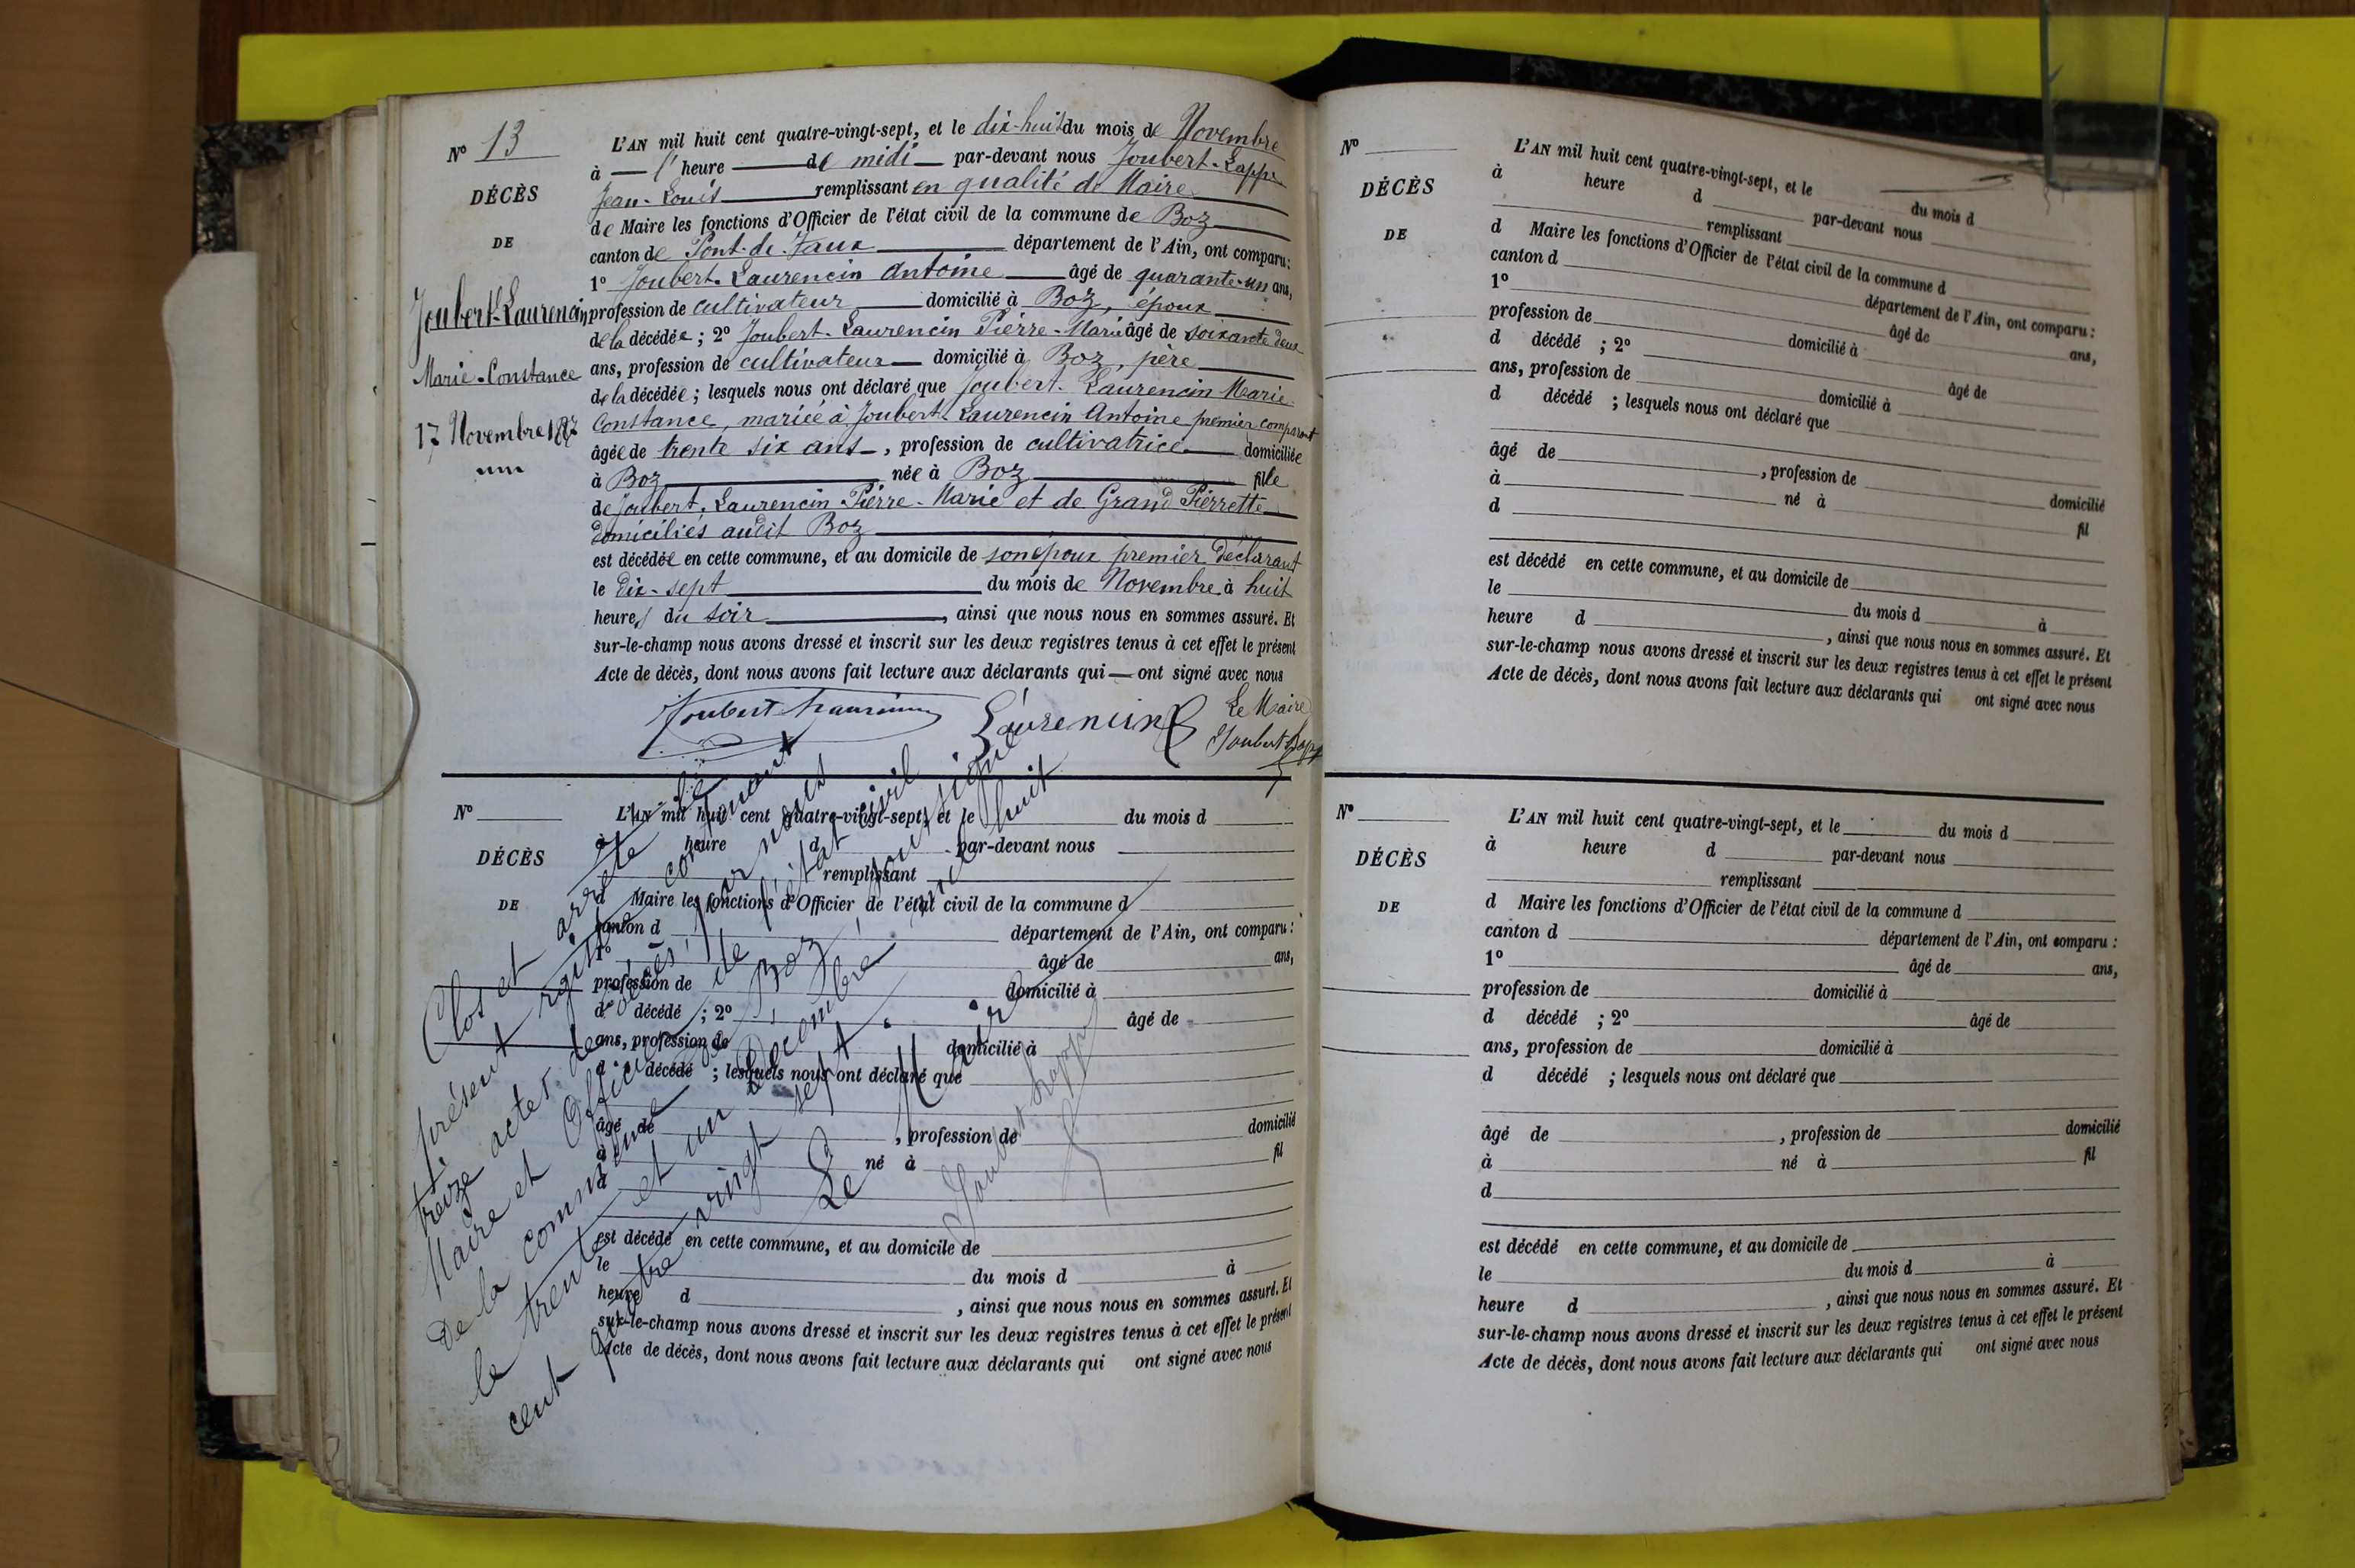 N° 13
DÉCÈS
DE
Joubert-Laurencin
Marie-Constance
17 Novembre 1887
L'AN mil huit cent quatre-vingt-sept, et le dix-huit du mois de Novembre
à — l' heure — de midi — par-devant nous Joubert-Lappe
Jean-Louis — remplissant en qualité de Maire
de Maire les fonctions d'Officier de l'état civil de la commune de Boz
canton de Pont-de-Vaux département de l'Ain, ont comparu:
1° Joubert-Laurencin Antoine âgé de quarante-un ans,
profession de cultivateur domicilié à Boz, époux
de la décédée; 2° Joubert-Laurencin Pierre-Marie âgé de soixante deux
ans, profession de cultivateur domicilié à Boz, père
de la décédée; lesquels nous ont déclaré que Joubert-Laurencin Marie
Constance, mariée à Joubert-Laurencin Antoine premier comparant
âgée de trente six ans, profession de cultivatrice domiciliée
à Boz née à Boz fille
de Joubert-Laurencin Pierre-Marie et de Grand Pierrette
domiciliés audit Boz
est décédée en cette commune, et au domicile de son époux premier déclarant
le dix-sept du mois de Novembre à huit
heures du soir, ainsi que nous nous en sommes assuré. Et
sur-le-champ nous avons dressé et inscrit sur les deux registres tenus à cet effet le présent
Acte de décès, dont nous avons fait lecture aux déclarants qui — ont signé avec nous
Joubert Laurencin Laurencin Le Maire
Joubert Lappe
N°
DÉCÈS
DE
L'AN mil huit cent quatre-vingt-sept, et le du mois d
à heure d par-devant nous
remplissant
d Maire les fonctions d'Officier de l'état civil de la commune d
canton d département de l'Ain, ont comparu:
1° âgé de ans,
profession de domicilié à
d décédé ; 2° âgé de
ans, profession de domicilié à
d décédé ; lesquels nous ont déclaré que
âgé de , profession de domicilié
à né à fil
d
est décédé en cette commune, et au domicile de
le du mois d à
heure d , ainsi que nous nous en sommes assuré. Et
sur-le-champ nous avons dressé et inscrit sur les deux registres tenus à cet effet le présent
Acte de décès, dont nous avons fait lecture aux déclarants qui ont signé avec nous
Clos et arrêté le
présent registre contenant
treize actes de décès, par nous
Maire et Officier de l'état civil
de la commune de Boz, soussigné
le trente et un Décembre mil huit
cent quatre vingt sept.
Le Maire
Joubert Lappe
N°
DÉCÈS
DE
L'AN mil huit cent quatre-vingt-sept, et le du mois d
à heure d par-devant nous
remplissant
d Maire les fonctions d'Officier de l'état civil de la commune d
canton d département de l'Ain, ont comparu:
1° âgé de ans,
profession de domicilié à
d décédé ; 2° âgé de
ans, profession de domicilié à
d décédé ; lesquels nous ont déclaré que
âgé de , profession de domicilié
à né à fil
d
est décédé en cette commune, et au domicile de
le du mois d à
heure d , ainsi que nous nous en sommes assuré. Et
sur-le-champ nous avons dressé et inscrit sur les deux registres tenus à cet effet le présent
Acte de décès, dont nous avons fait lecture aux déclarants qui ont signé avec nous
N°
DÉCÈS
DE
L'AN mil huit cent quatre-vingt-sept, et le du mois d
à heure d par-devant nous
remplissant
d Maire les fonctions d'Officier de l'état civil de la commune d
canton d département de l'Ain, ont comparu :
1° âgé de ans,
profession de domicilié à
d décédé ; 2° âgé de
ans, profession de domicilié à
d décédé ; lesquels nous ont déclaré que
âgé de , profession de domicilié
à né à fil
d
est décédé en cette commune, et au domicile de
le du mois d à
heure d , ainsi que nous nous en sommes assuré. Et
sur-le-champ nous avons dressé et inscrit sur les deux registres tenus à cet effet le présent
Acte de décès, dont nous avons fait lecture aux déclarants qui ont signé avec nous